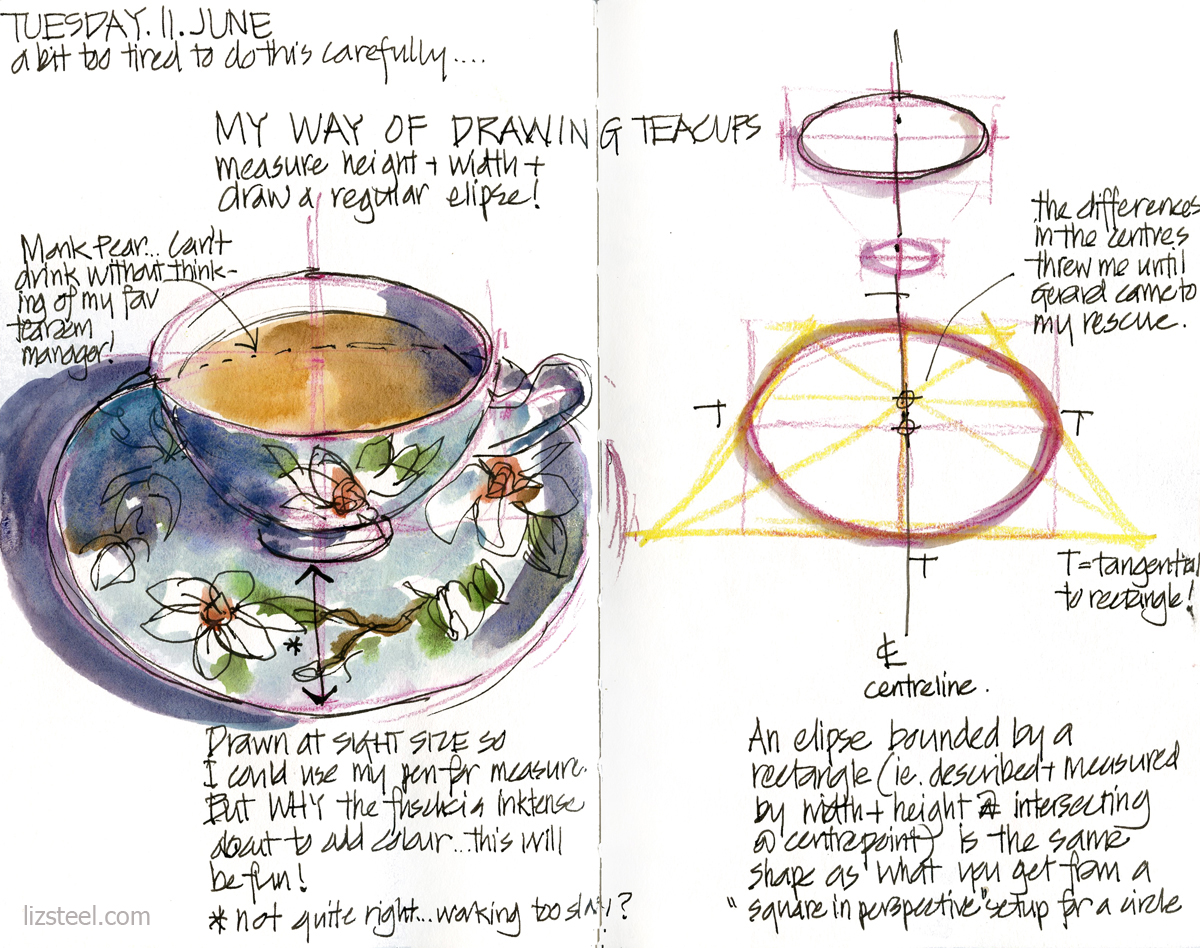 TUESDAY. 11. JUNE
a bit too tired to do this carefully....
MY WAY OF DRAWING TEACUPS
measure height + width +
draw a regular elipse!
Monk Pear... Can't
drink without think-
ing of my fav
tearoom
manager!
the differences
in the centres
threw me until
Gerard came to
my rescue.
T
T
T
T
T = tangential
to rectangle!
*
℄
centreline.
Drawn at SIGHT SIZE so
I could use my pen for measure.
But WHY the fuschia inktense
about to add colour...this will
be fun!
* not quite right...working too
An elipse bounded by a
rectangle (ie. described + measured
by width + height intersecting
@ centrepoint) is the same
shape as what you get from a
"square in perspective" setup for a circle
lizsteel.com